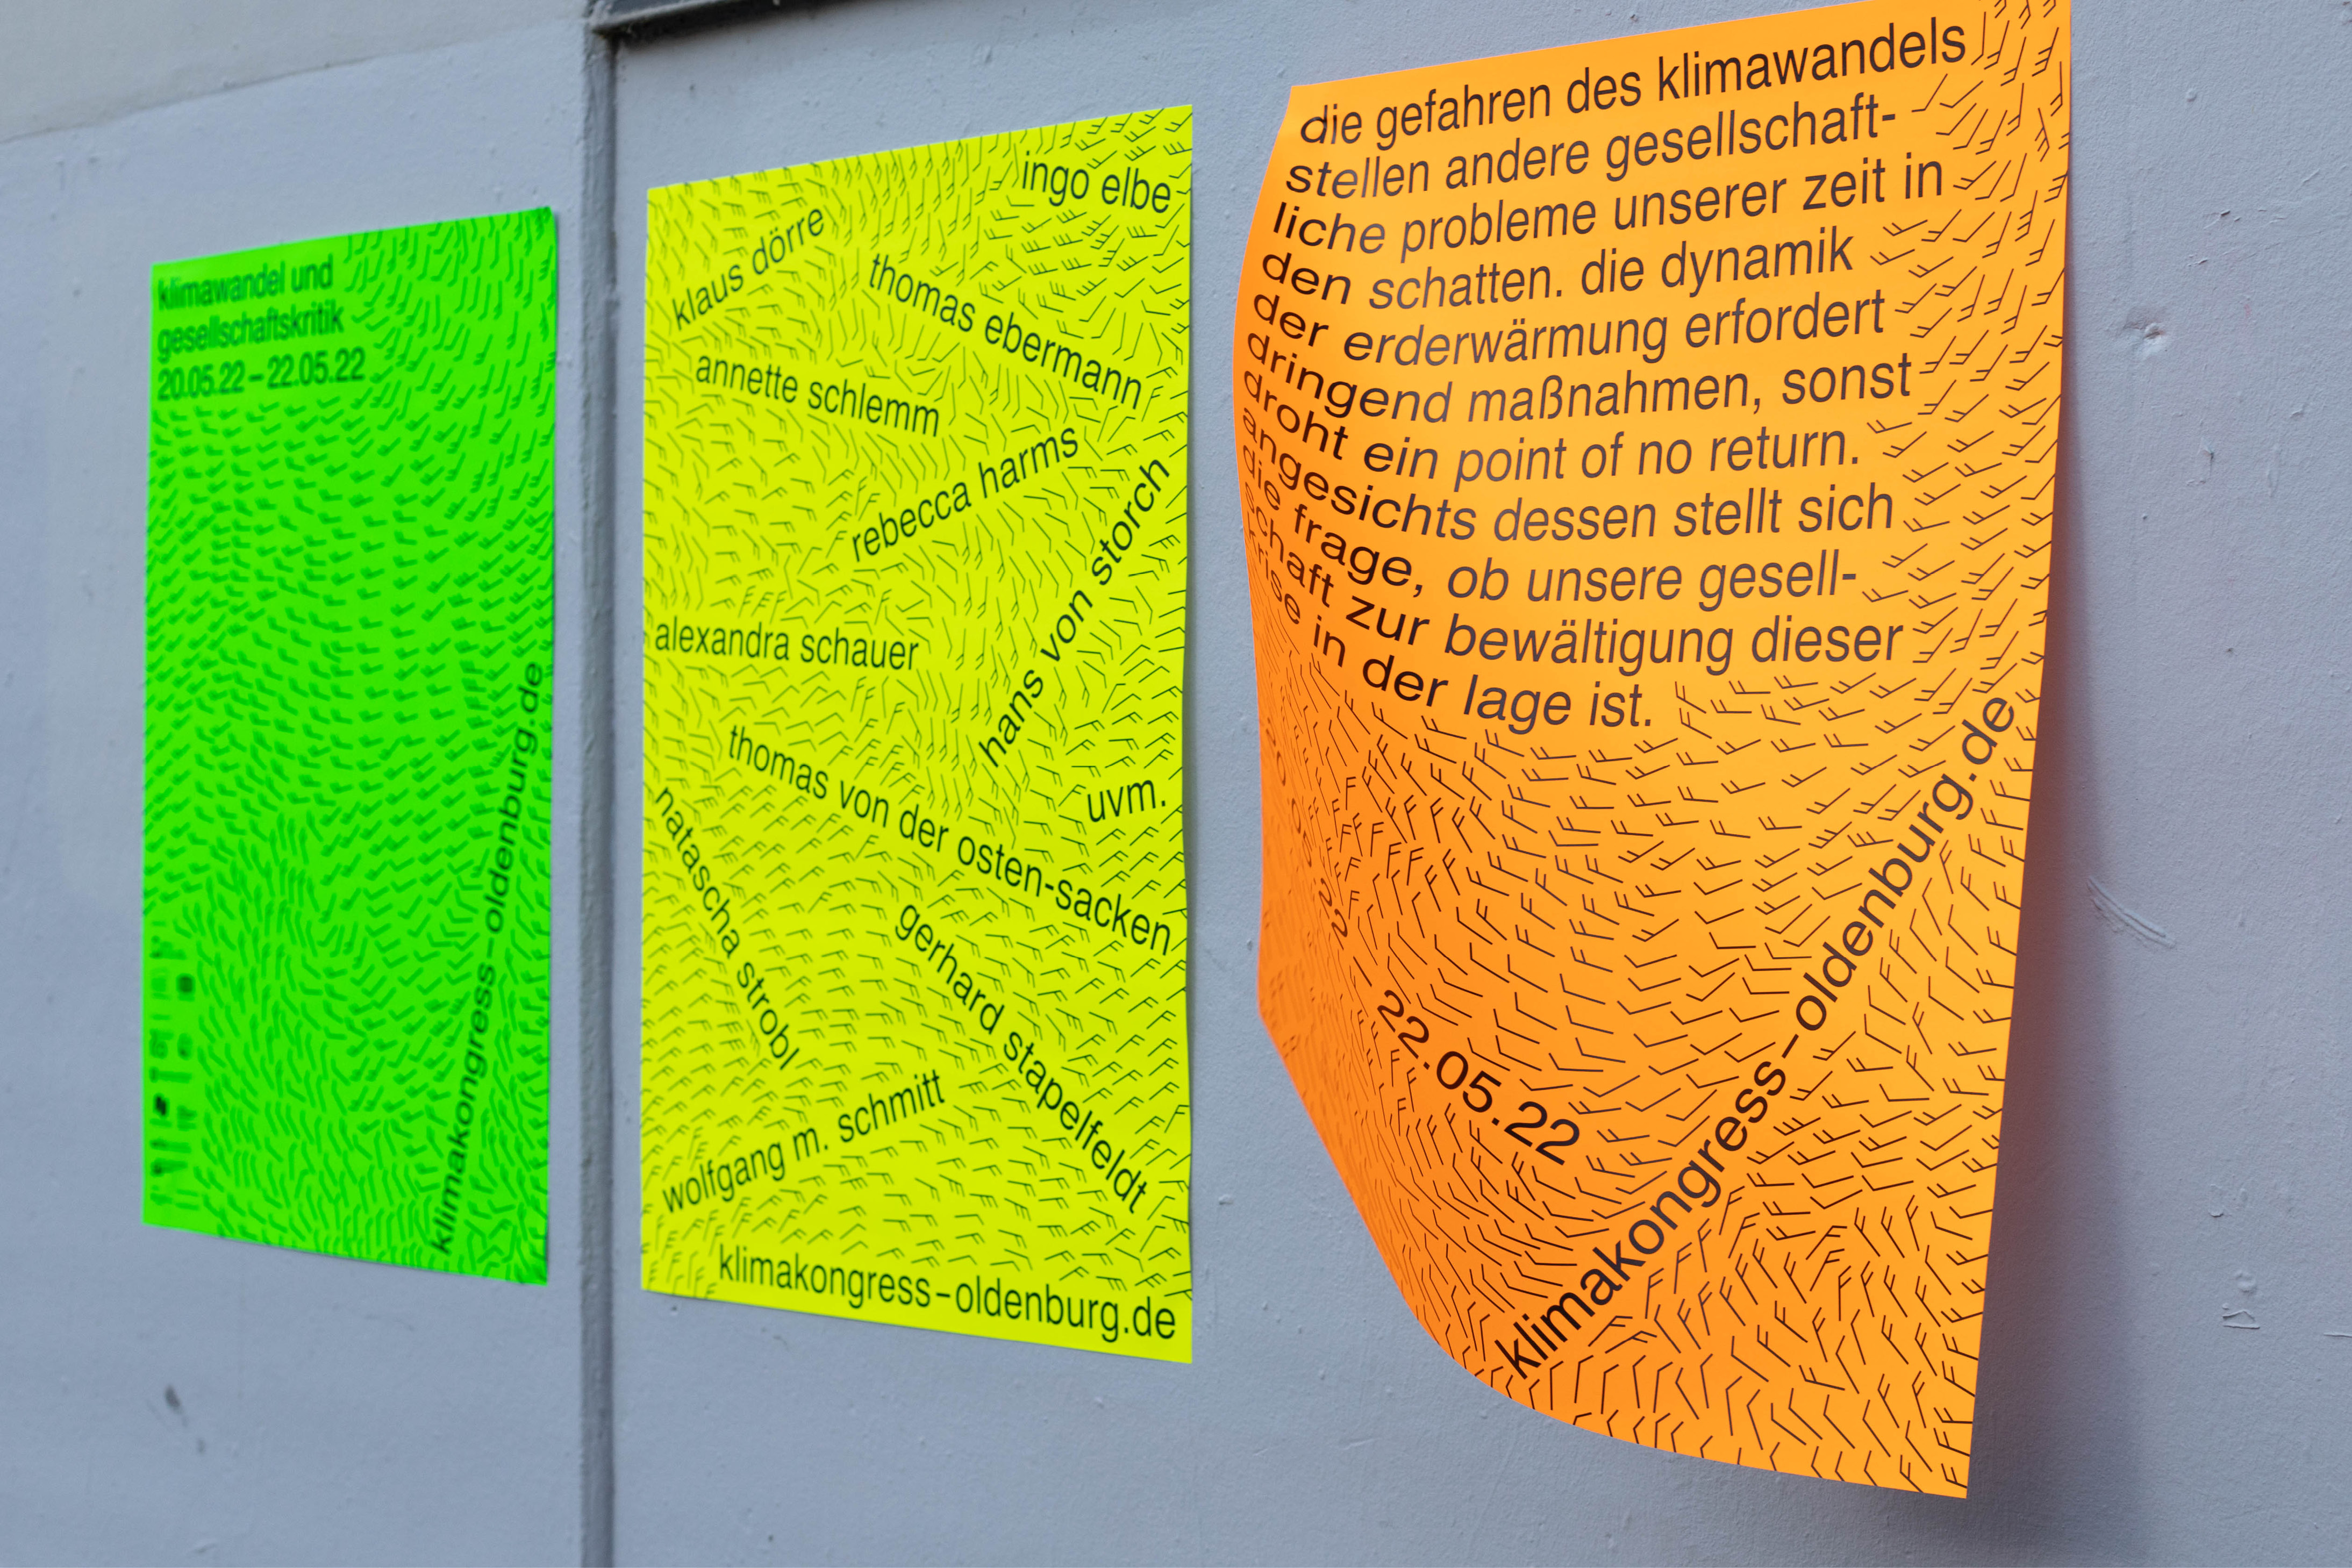 klimawandel und
gesellschaftskritik
20.05.22 – 22.05.22
klimakongress–oldenburg.de
ingo elbe
klaus dörre
thomas ebermann
annette schlemm
rebecca harms
hans von storch
alexandra schauer
thomas von der osten-sacken
uvm.
natascha strobl
gerhard stapelfeldt
wolfgang m. schmitt
klimakongress–oldenburg.de
die gefahren des klimawandels
stellen andere gesellschaft-
liche probleme unserer zeit in
den schatten. die dynamik
der erderwärmung erfordert
dringend maßnahmen, sonst
droht ein point of no return.
angesichts dessen stellt sich
die frage, ob unsere gesell-
schaft zur bewältigung dieser
krise in der lage ist.
20.05.22 – 22.05.22
klimakongress–oldenburg.de